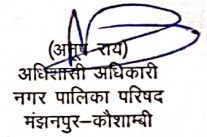 (अनूप राय)
अधिशासी अधिकारी
नगर पालिका परिषद
मंझनपुर–कौशाम्बी